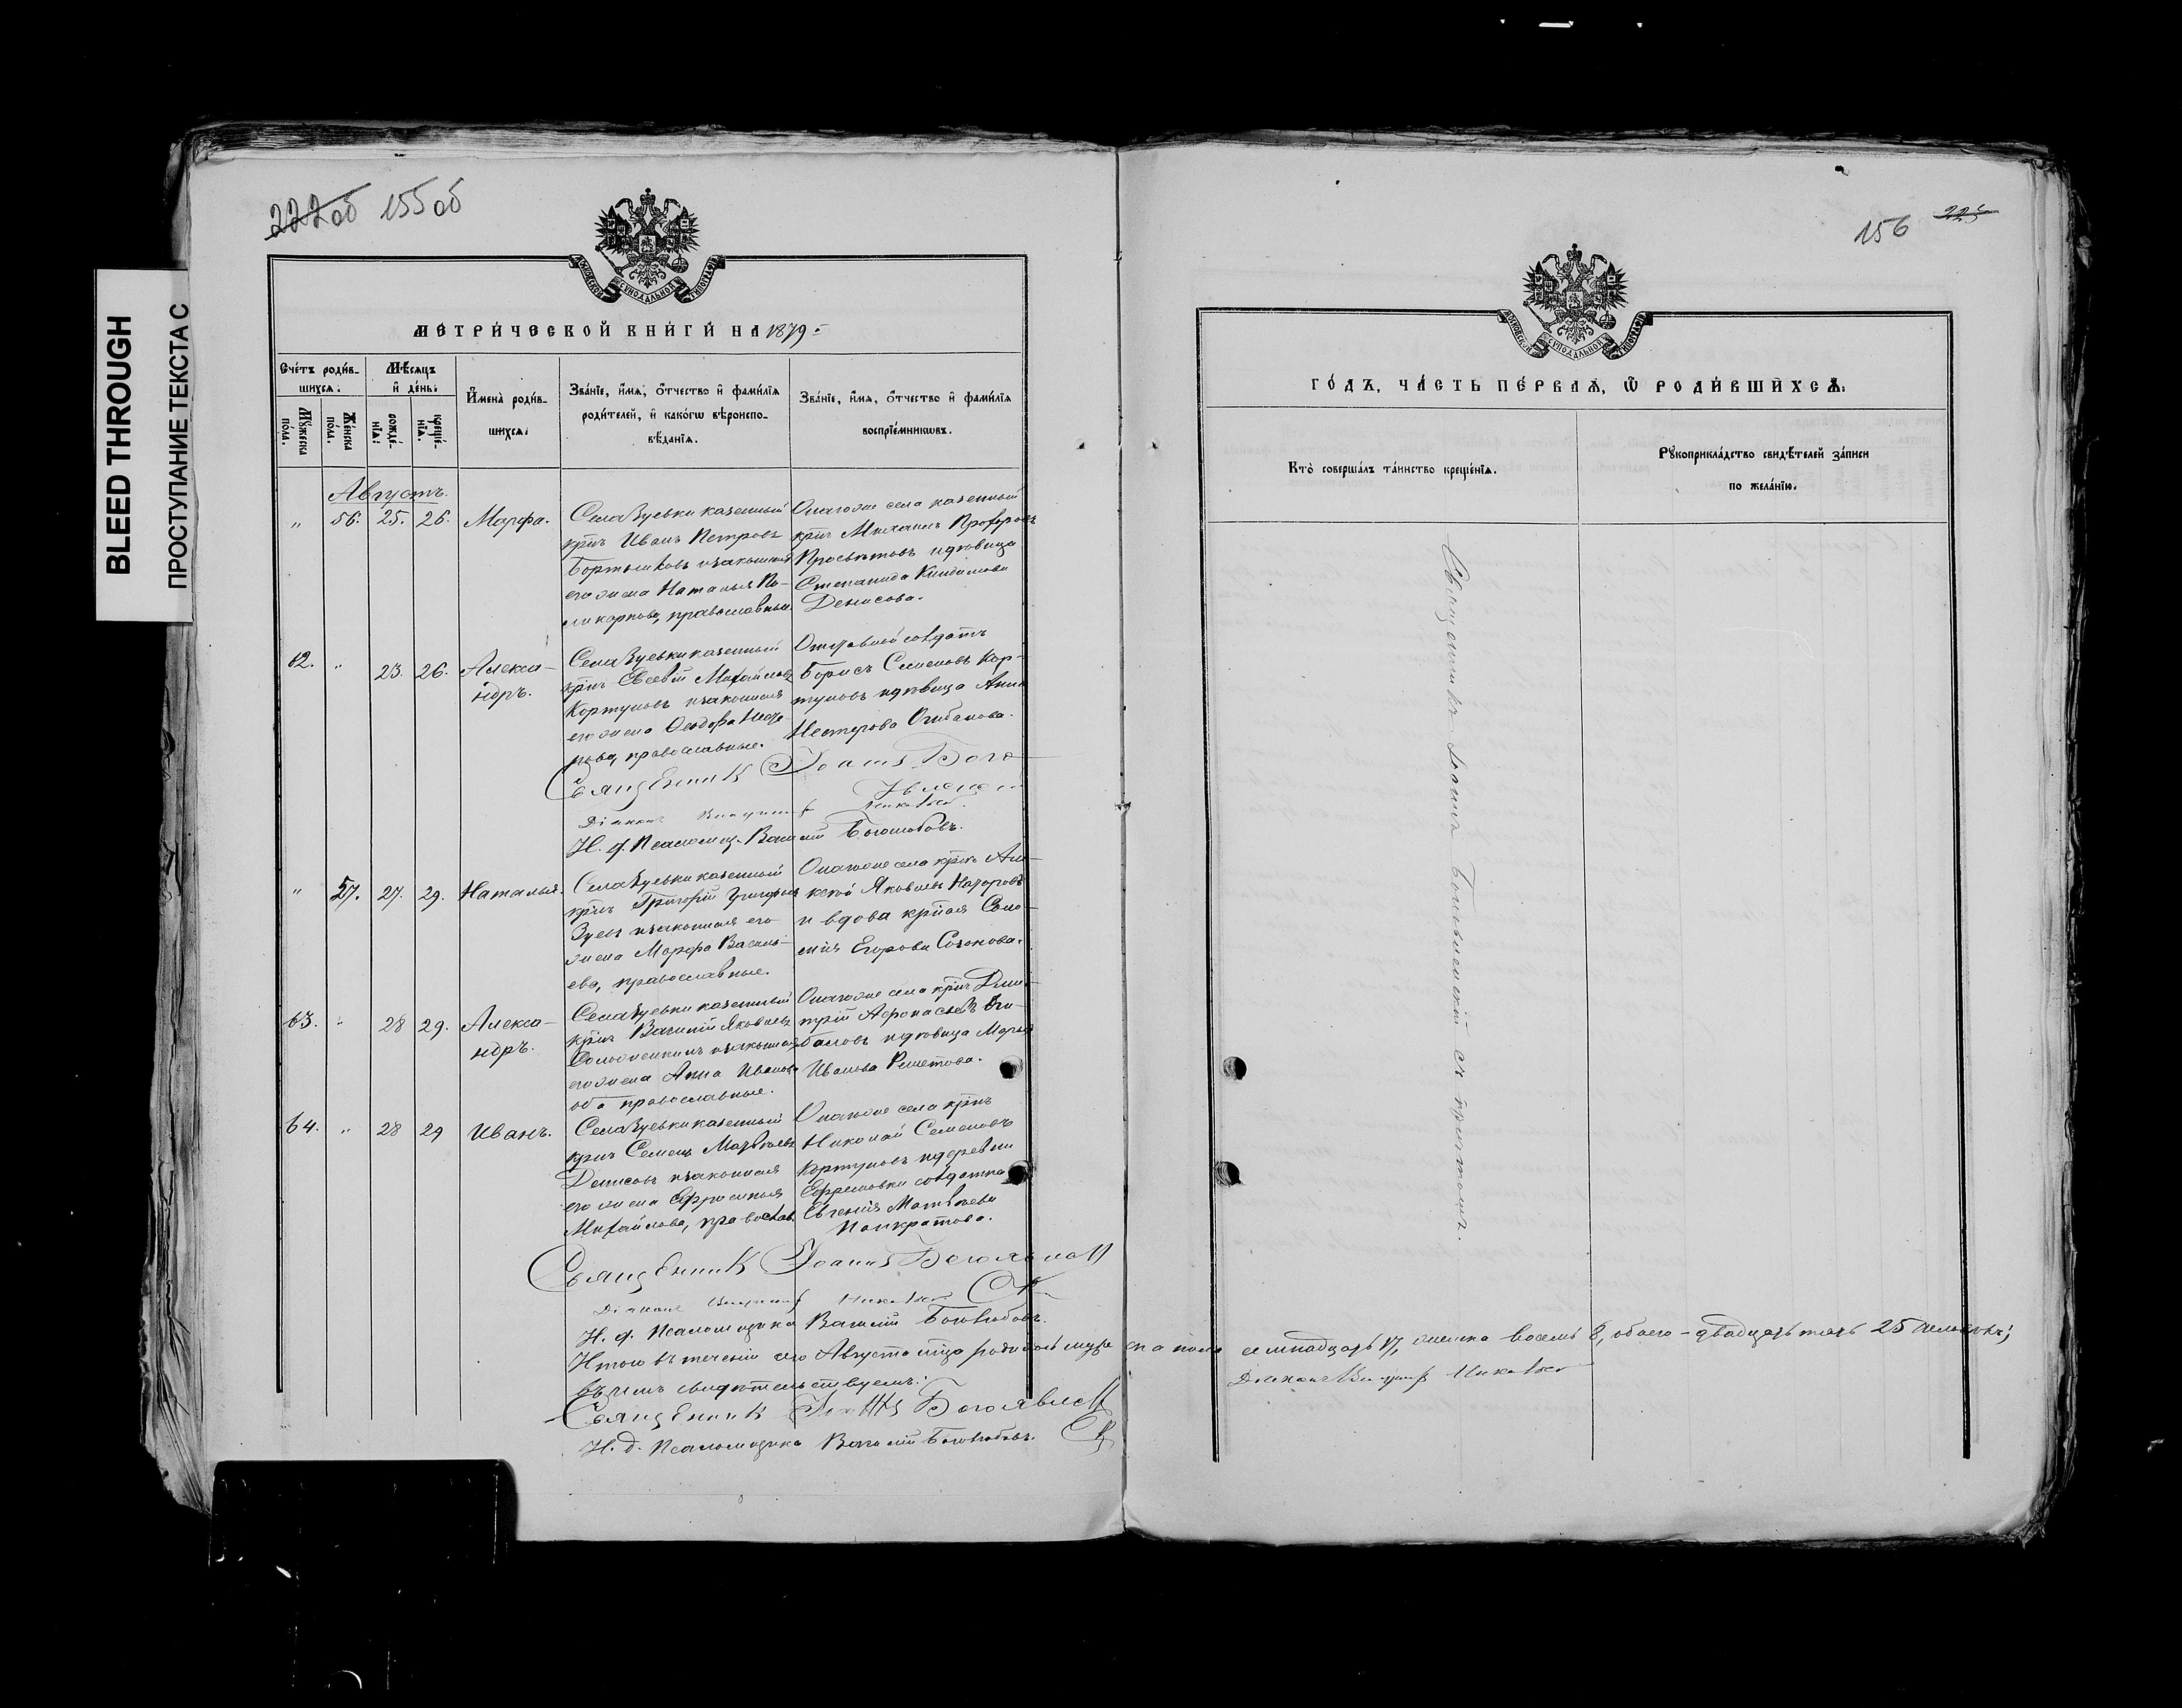 BLEED THROUGH
ПРОСТУПАНИЕ ТЕКСТА С
222об 155об
МЕТРИ́ЧЕСКОЙ КНИ́ГИ НА 1879
Сче́тъ роди́вшихся:
Му́жеска по́ла.
Же́нска по́ла.
Мѣ́сяцъ и҆ де́нь:
рожде́нїя:
креще́нїя.
И҆мена̀ роди́вшихся:
Зва́нїе, и҆́мя, ѻ҆́тчество и҆ фами́лїя
роди́телей, и҆ како́гѡ вѣроиспо-
вѣ́данїя.
Зва́нїе, и҆́мя, ѻ҆́тчество и҆ фами́лїя
воспрїе́мникѡвъ.
Августъ.
" 56. 25. 26. Марфа.
Села Зуевки казенный
крнъ Иванъ Петровъ
Бортниковъ и законная
его жена Наталья По-
ликарпова, православные.
Онагоже села казенный
крнъ Михаилъ Прохоровъ
Просвѣтовъ и дѣвица
Степанида
Денисова.
62. " 23. 26. Алекса-
ндръ.
Села Зуевки казенный
крнъ Евсевій Михайловъ
Кортуновъ и законная
его жена Ѳеодора
православные.
Отставной солдатъ
Борисъ Семеновъ Кор-
туновъ и дѣвица Анна
Нестерова Огибалова.
Священникъ Іоаннъ Бого-
явленскій
Діаконъ
И. д. Псаломщ. Василій Боголюбовъ.
" 57. 27. 29. Наталья.
Села Зуевки казенный
крнъ Григорій Григорьевъ
Зуевъ и законная его
жена Марфа Василь-
ева, православные.
Онагоже села крнъ Але-
ксѣй Яковлевъ Назаровъ
и вдова крная Соло-
мія Егорова Созонова.
63. " 28 29. Алекса-
ндръ.
Села Зуевки казенный
крнъ Василій Яковлевъ
и законная
его жена Анна Иванова
оба православные.
Онагоже села крнъ Дми-
трій Аѳонасьевъ Оги-
баловъ и дѣвица Марья
Иванова Решетова.
64. " 28 29 Иванъ.
Села Зуевки казенный
крнъ Семенъ Матвѣевъ
Денисовъ и законная
его жена Ефросинья
Михайлова, православ.
Онагоже села крнъ
Николай Семеновъ
Кортуновъ и деревни
Ефремовки солдатка
Евгенія Матвѣева
Панкратова.
Священникъ Іоаннъ Богоявленскій
Діаконъ
И. д. Псаломщика Василій Боголюбовъ.
Итого въ теченіи сего Августа мца родилось муже ска пола семнадцать 17, женска восемь 8, обоего – двадцать пять 25 человѣкъ;
въ чемъ свидѣтельствуемъ:
Священникъ Іоаннъ Богоявленскій
И. д. Псаломщика Василій Боголюбовъ.
156 223
ГО́ДЪ, ЧА́СТЬ ПЕ́РВАЯ, Ѡ҆ РОДИ́ВШИХСЯ:
Кто̀ соверша́лъ та́инство креще́нїя.
Рꙋкоприкла́дство свидѣ́телей за́писи
по жела́нїю.
Священникъ Іоаннъ Богоявленскій съ причтомъ.
Діаконъ